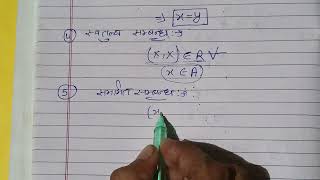 ⇒ x=y
4) स्वतुल्य सम्बन्ध :-
(x, x) ∈ R ∀
x ∈ A
5) सममित सम्बन्ध :-
(x,